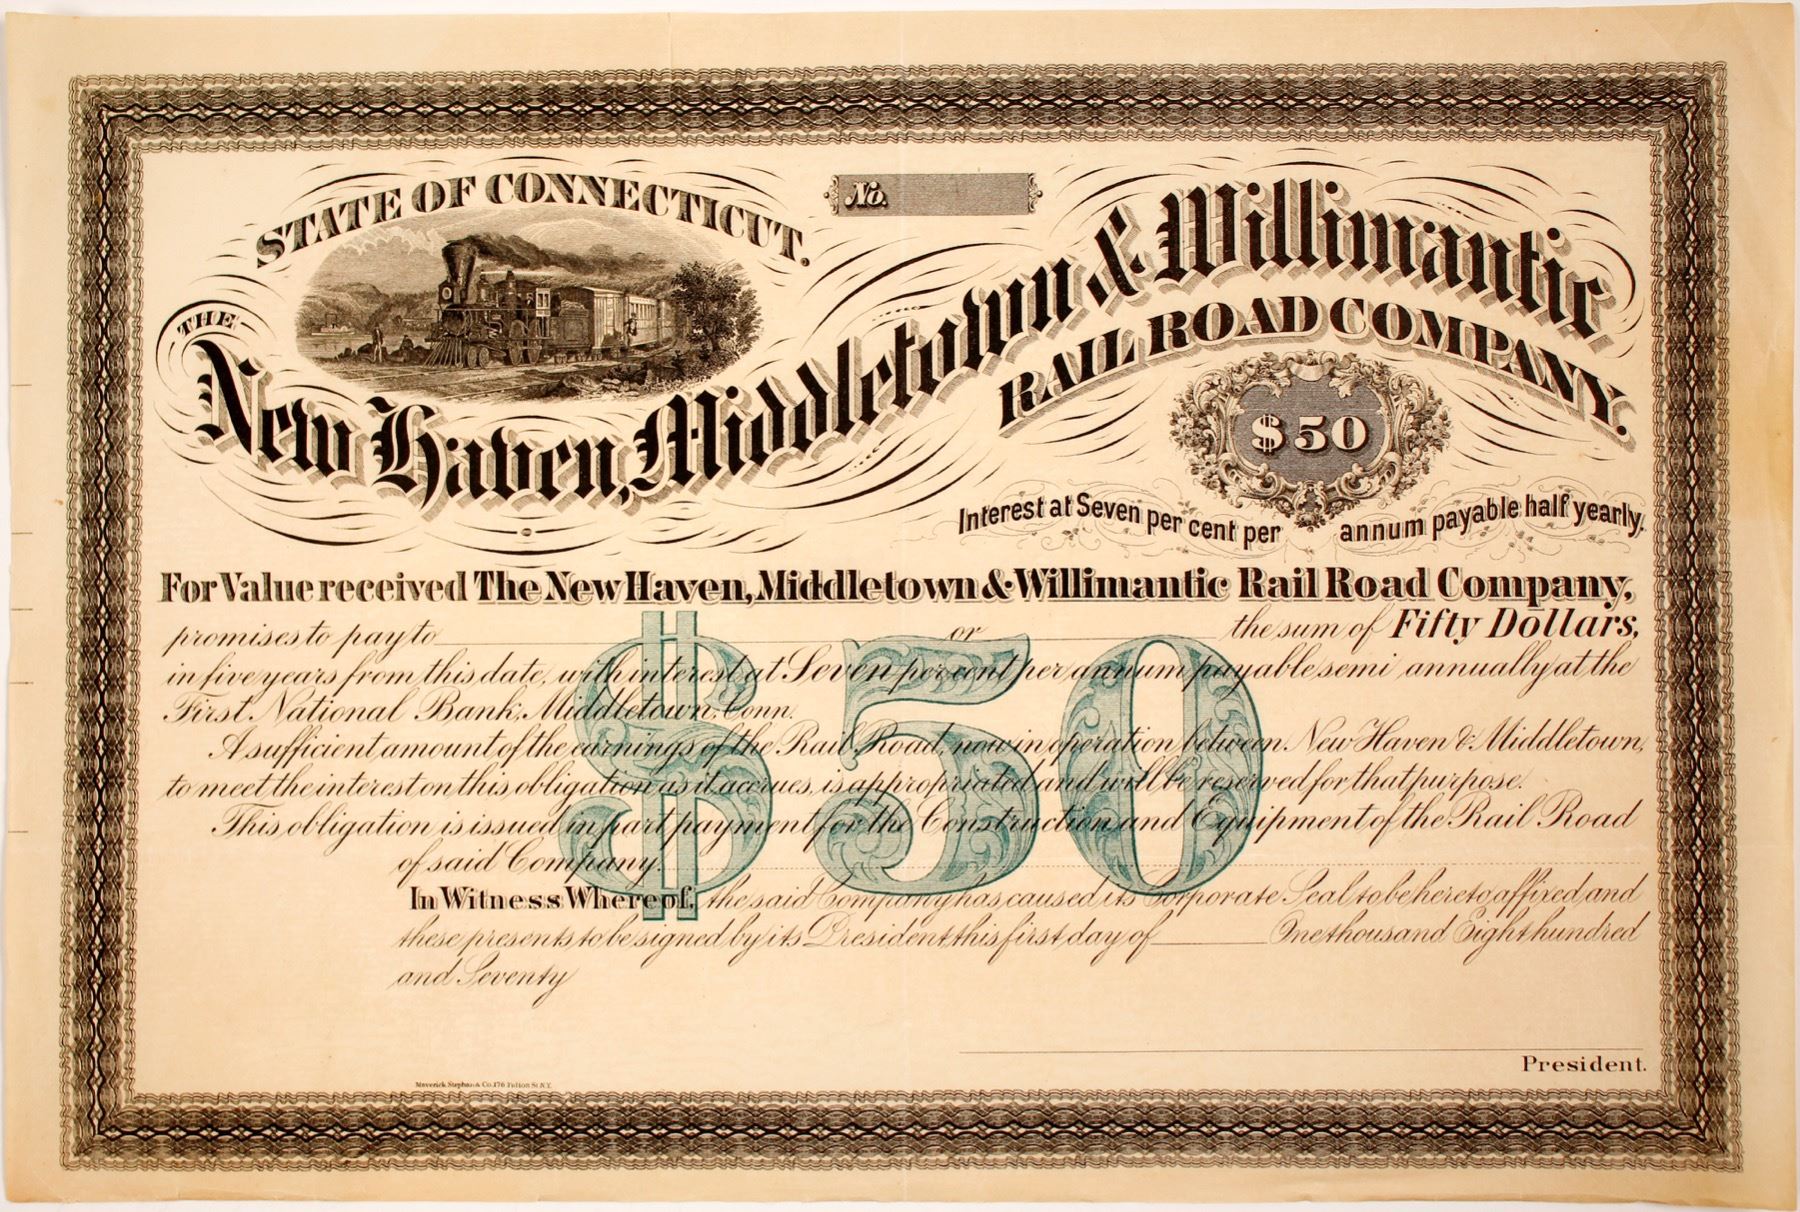 STATE OF CONNECTICUT.
No.
THE
New Haven, Middletown & Willimantic
RAIL ROAD COMPANY.
$50
Interest at Seven per cent per annum payable half yearly.
For Value received The New Haven, Middletown & Willimantic Rail Road Company,
promises to pay to or the sum of Fifty Dollars,
in five years from this date, with interest at Seven per cent per annum payable semi annually at the
First National Bank, Middletown, Conn.
$50
A sufficient amount of the earnings of the Rail Road, now in operation between New Haven & Middletown,
to meet the interest on this obligation as it accrues, is appropriated and will be reserved for that purpose.
This obligation is issued in part payment for the Construction and Equipment of the Rail Road
of said Company.
In Witness Whereof, the said Company has caused its Corporate Seal to be hereto affixed, and
these presents to be signed by its President this first day of One thousand Eight hundred
and Seventy
President.
Maverick Stephan & Co. 176 Fulton St. N.Y.